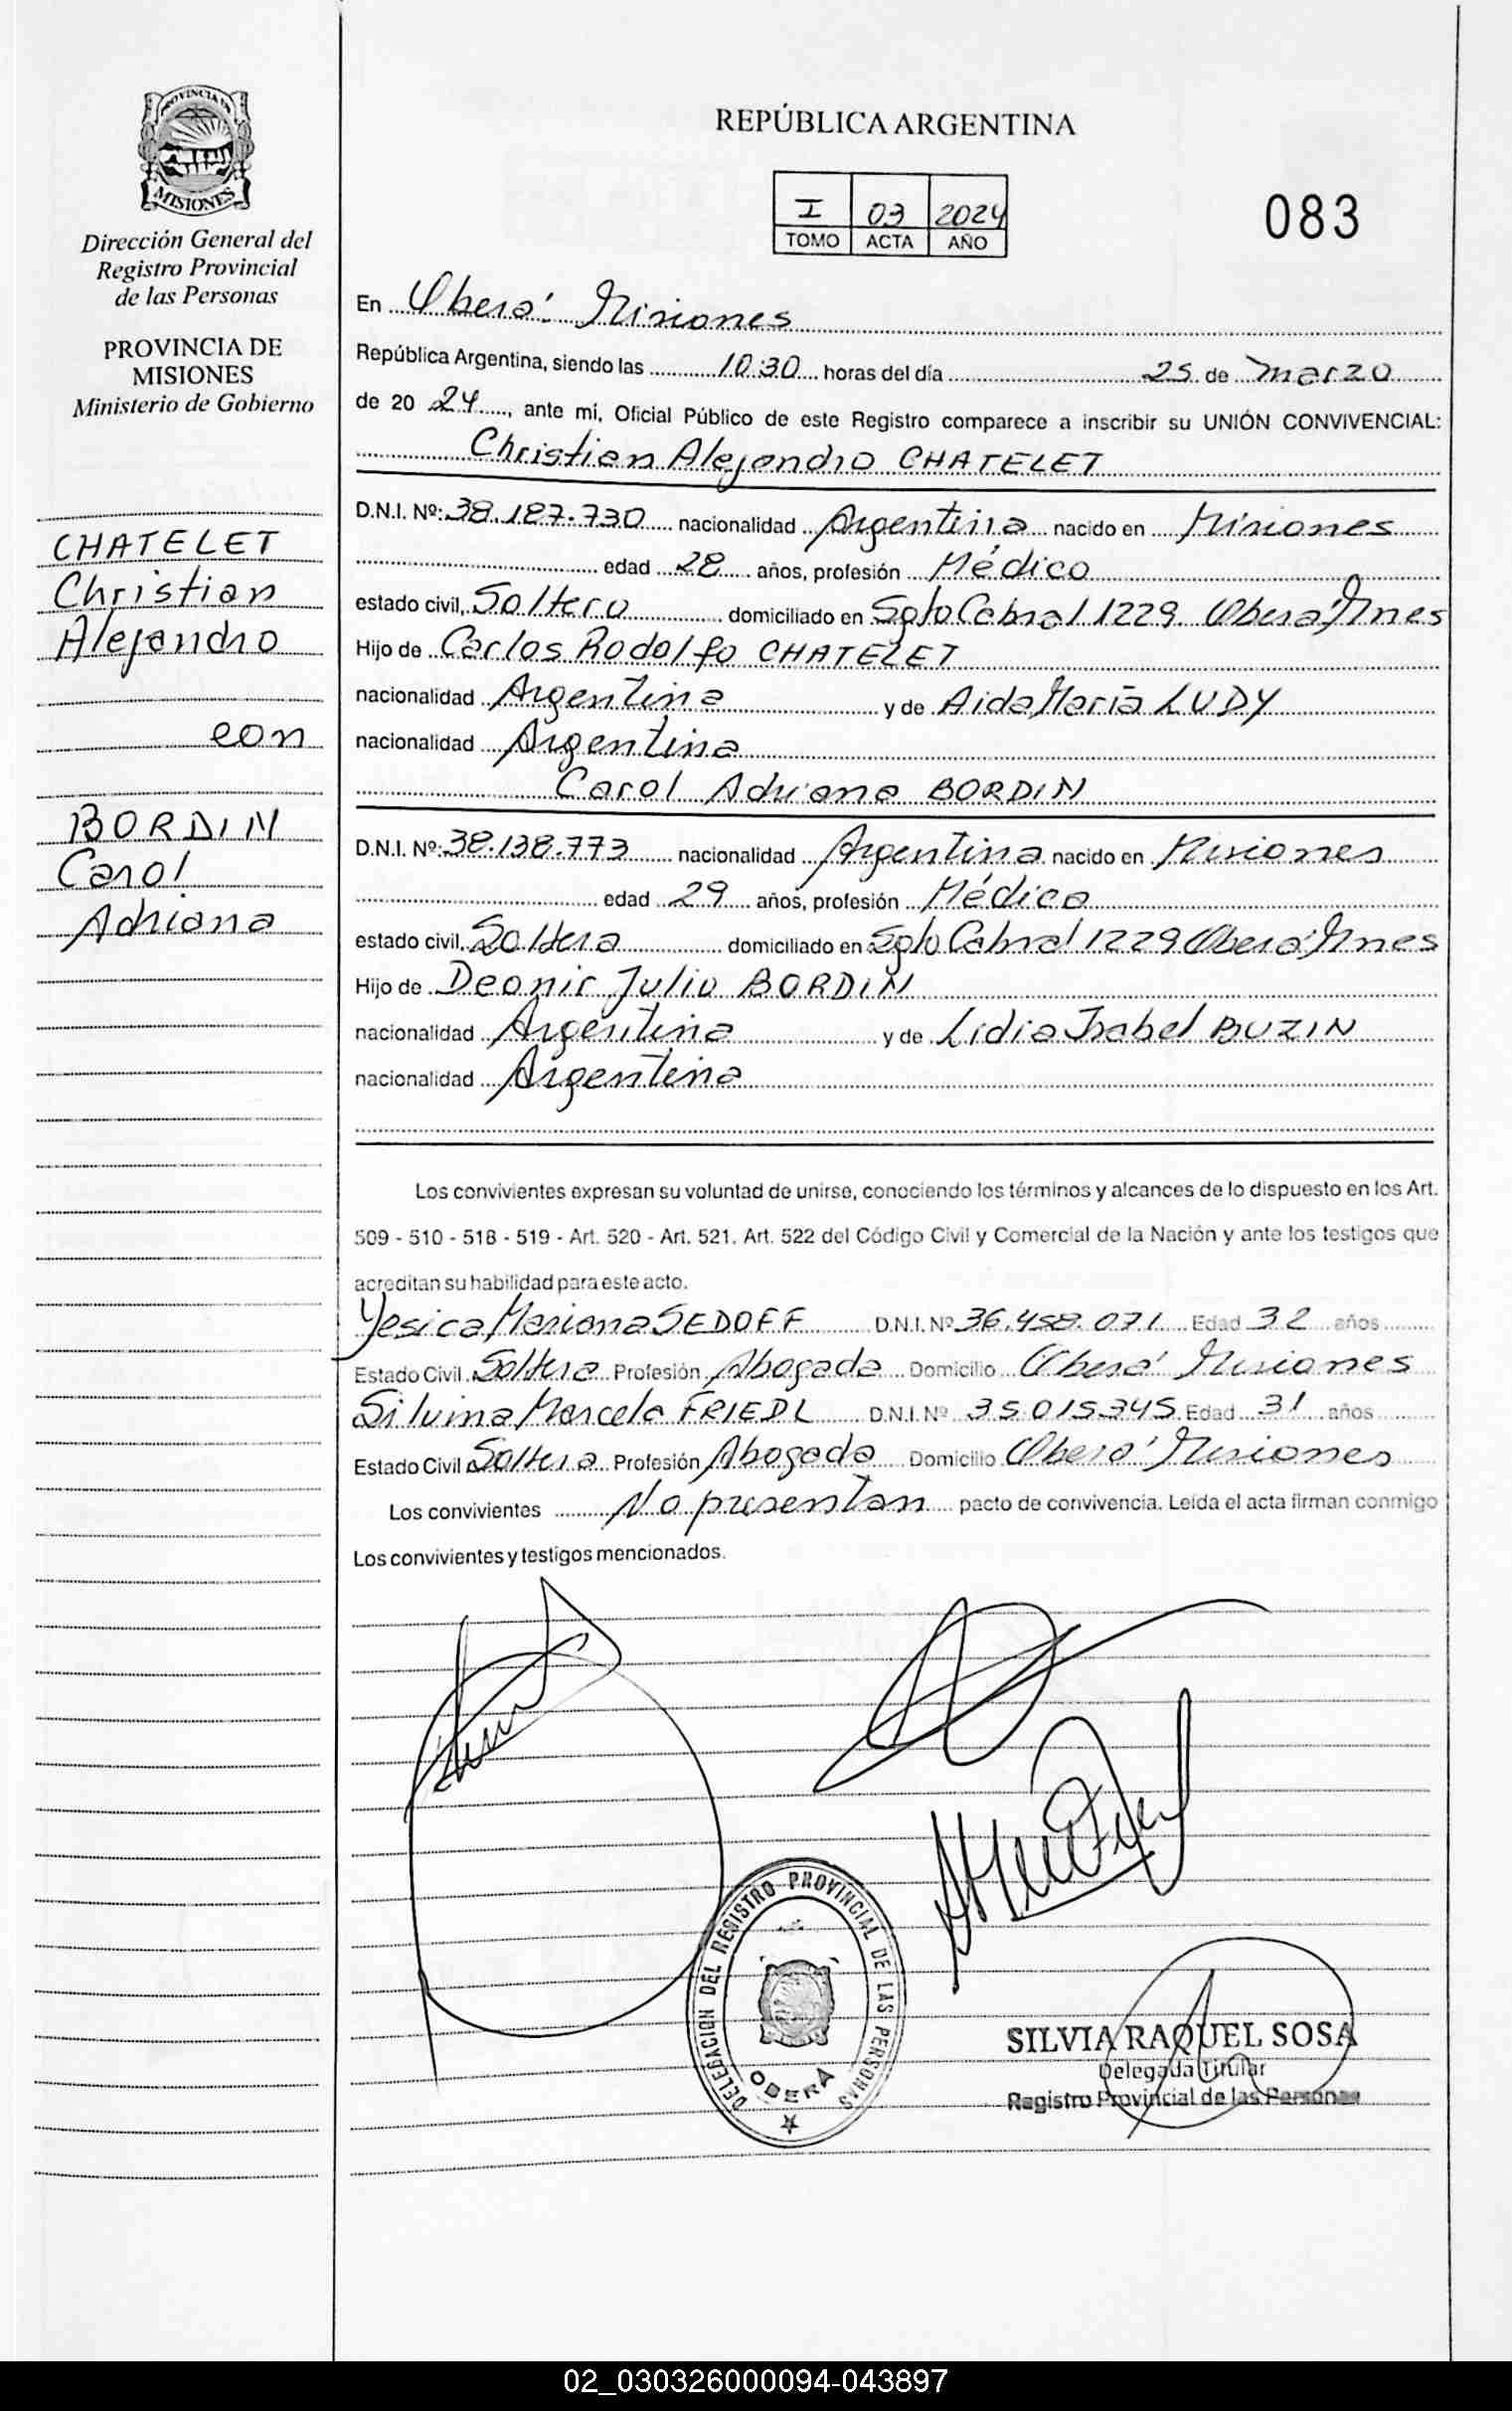 PROVINCIA DE
MISIONES
Dirección General del
Registro Provincial
de las Personas
PROVINCIA DE
MISIONES
Ministerio de Gobierno
CHATELET
Christian
Alejandro
con
BORDIN
Carol
Adriana
REPÚBLICA ARGENTINA
I 03 2024
TOMO ACTA AÑO
083
En Oberá: Misiones
República Argentina, siendo las 10:30 horas del día 25 de marzo
de 20 24, ante mi, Oficial Público de este Registro comparece a inscribir su UNIÓN CONVIVENCIAL:
Christian Alejandro CHATELET
D.N.I. Nº: 38.187.730 nacionalidad Argentina nacido en Misiones
edad 28 años, profesión Médico
estado civil, Soltero domiciliado en Sgto Cabral 1229. Oberá Mnes
Hijo de Carlos Rodolfo CHATELET
nacionalidad Argentina y de Aida María LUDY
nacionalidad Argentina
Carol Adriana BORDIN
D.N.I. Nº: 38.138.773 nacionalidad Argentina nacido en Misiones
edad 29 años, profesión Médica
estado civil, Soltera domiciliado en Sgto Cabral 1229 Oberá Mnes
Hijo de Deonir Julio BORDIN
nacionalidad Argentina y de Lidia Isabel BUZIN
nacionalidad Argentina
Los convivientes expresan su voluntad de unirse, conociendo los términos y alcances de lo dispuesto en los Art.
509 - 510 - 518 - 519 - Art. 520 - Art. 521. Art. 522 del Código Civil y Comercial de la Nación y ante los testigos que
acreditan su habilidad para este acto.
Yesica Mariana SEDOFF D.N.I. Nº 36.458.071 Edad 32 años
Estado Civil Soltera Profesión Abogada Domicilio Oberá Misiones
Silvina Marcela FRIEDL D.N.I. Nº 35.015.345 Edad 31 años
Estado Civil Soltera Profesión Abogada Domicilio Oberá Misiones
Los convivientes No presentan pacto de convivencia. Leída el acta firman conmigo
Los convivientes y testigos mencionados.
DELEGACION DEL REGISTRO PROVINCIAL DE LAS PERSONAS
OBERÁ
SILVIA RAQUEL SOSA
Delegada Titular
Registro Provincial de las Personas
02_030326000094-043897